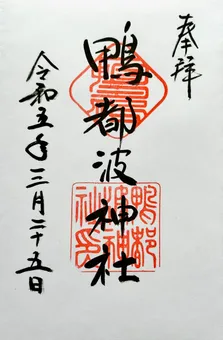 奉拝
鴨都波神社
令和五年三月二十五日
鴨都
波神
社印